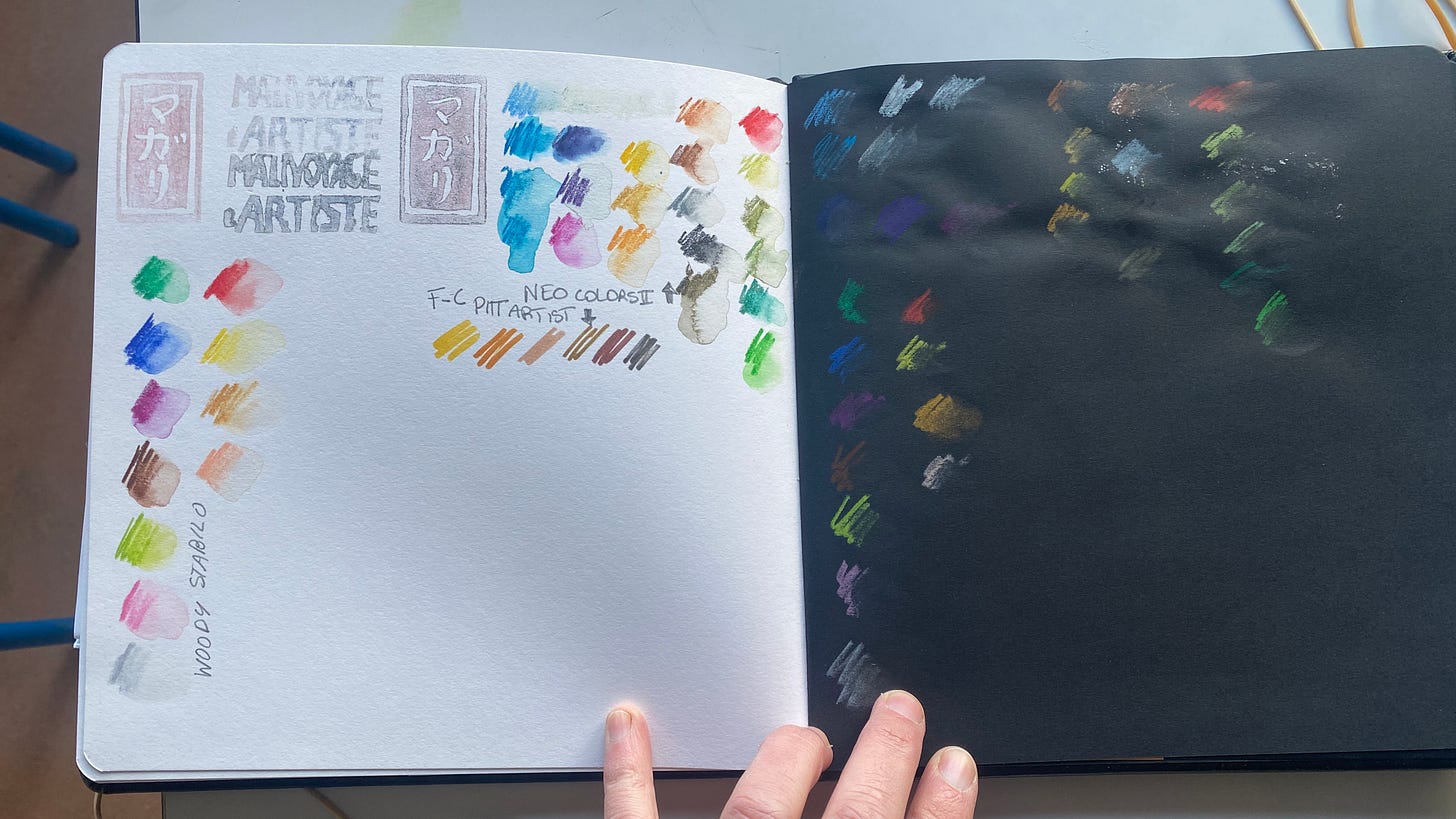 マガリ
MALIVOYAGE
& ARTISTE
MALIVOYAGE
& ARTISTE
マガリ
NEO COLORS II ↑
F-C PITT ARTIST ↓
WOODY STABILO